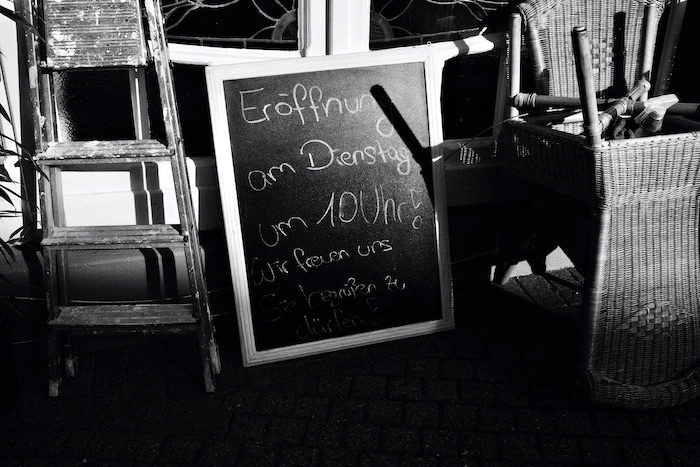 Eröffnung
am Dienstag
um 10 Uhr!
Wir freuen uns
Sie begrüßen zu
dürfen!